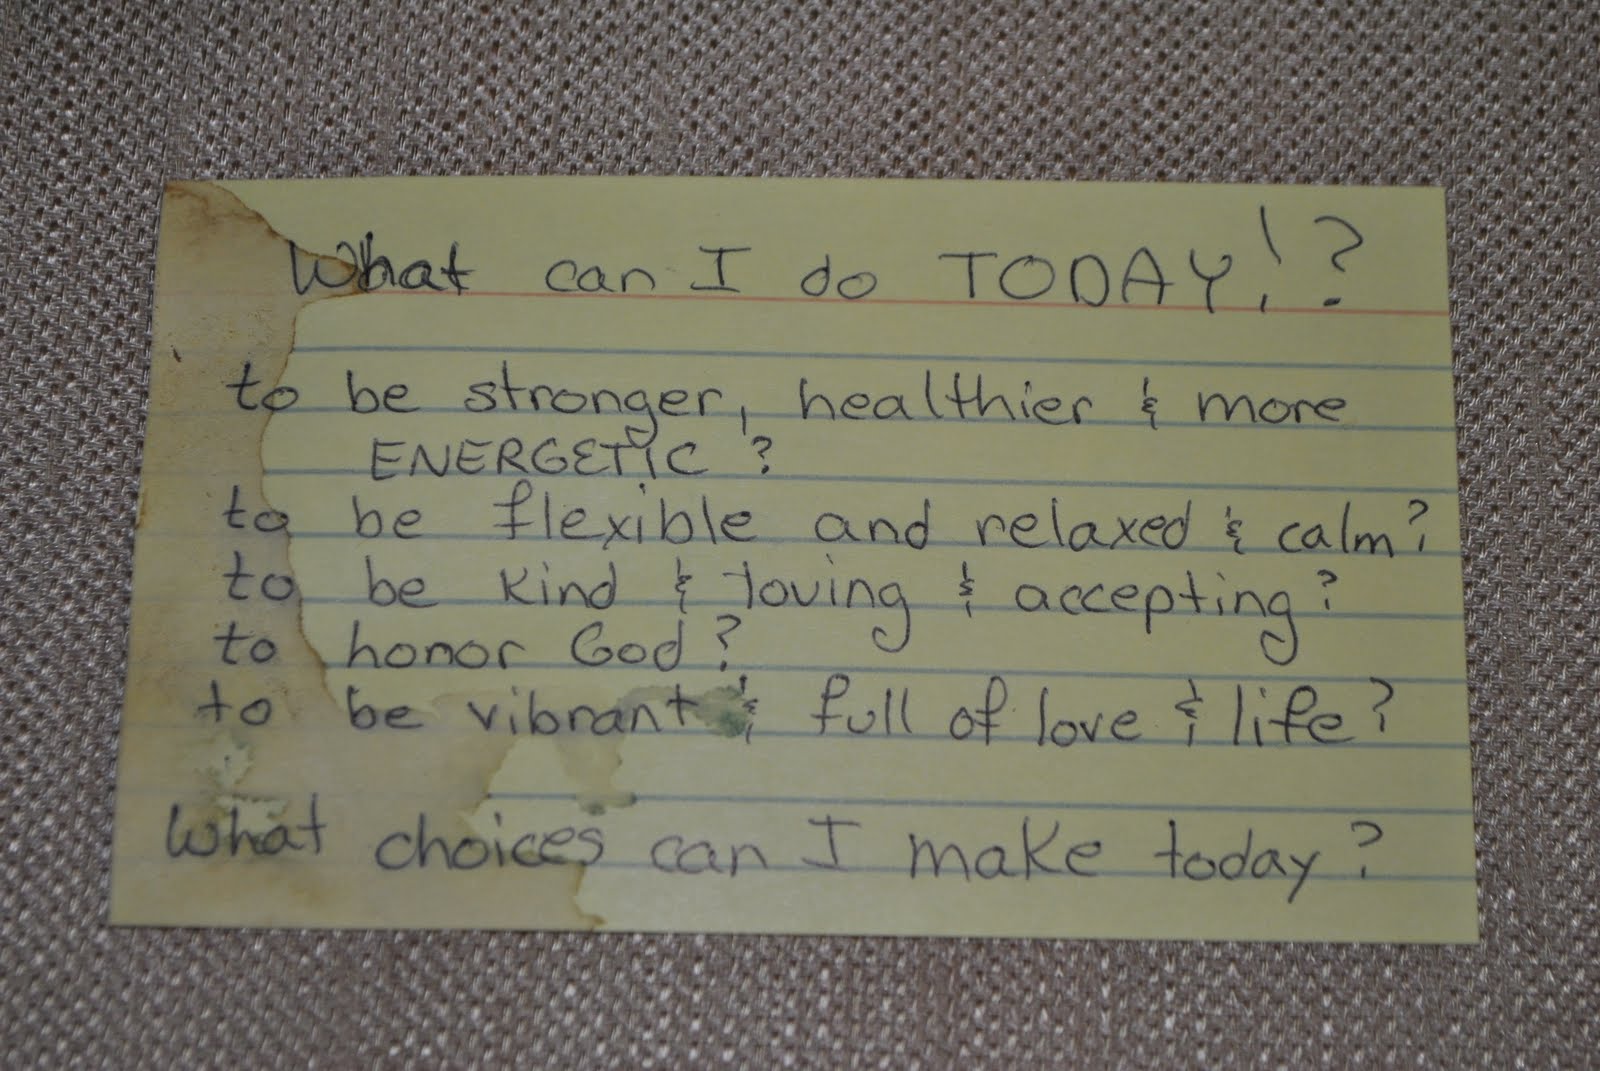 What can I do TODAY!?
to be stronger, healthier & more
ENERGETIC?
to be flexible and relaxed & calm?
to be kind & loving & accepting?
to honor God?
to be vibrant & full of love & life?
What choices can I make today?